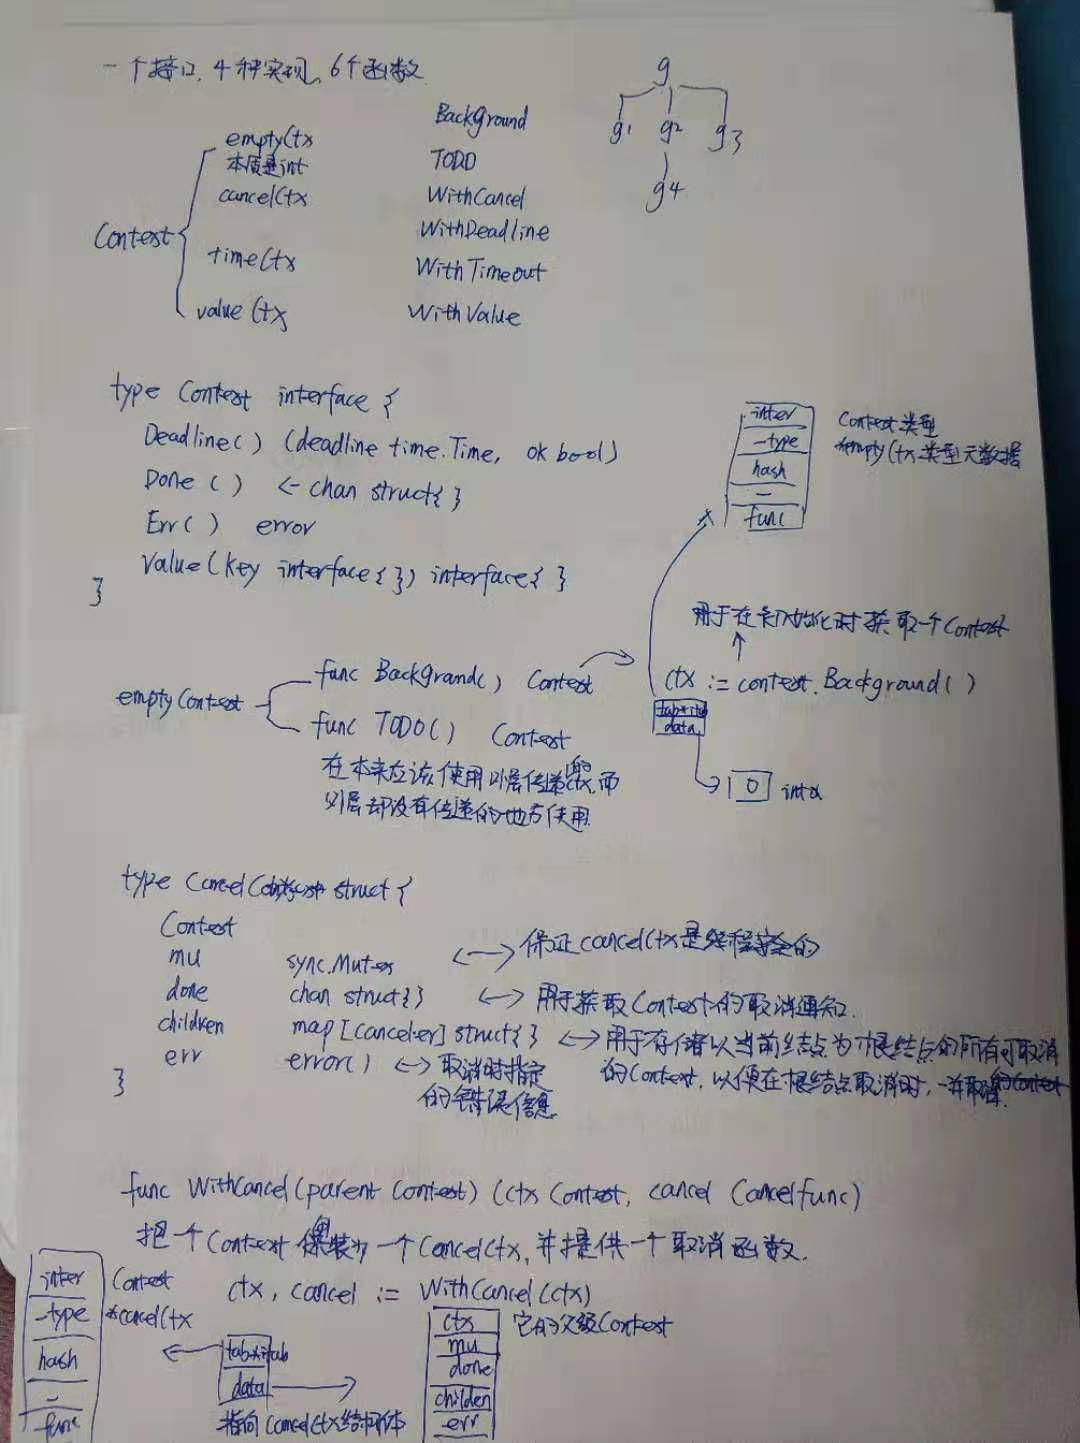 一个接口, 4种实现, 6个函数
g
g1 g2 g3
g4
Background
emptyCtx
本质是int
TODO
cancelCtx WithCancel
WithDeadline
Context
timeCtx WithTimeout
valueCtx WithValue
type Context interface {
Deadline() (deadline time.Time, ok bool)
Done() <- chan struct{}
Err() error
Value(key interface{}) interface{}
}
inter Context类型
_type *emptyCtx类型元数据
hash
_
func
用于在初始化时获取一个Context
ctx := context.Background()
tab*itab
data
0 int
emptyContext
func Backgrand() Context
func TODO() Context
在本来应该使用外层传递的ctx,而
外层却没有传递的地方使用
type CancelContext struct {
Context
mu sync.Mutex <-> 保证cancelCtx是线程安全的
done chan struct{} <-> 用于获取Context的取消通知.
children map[canceler] struct{} <-> 用于存储以当前结点为根结点的所有可取消
的Context, 以便在根结点取消时, 一并取消
err error() <-> 取消时指定
的错误信息
}
func WithCancel(parent Context) (ctx Context, cancel Cancelfunc)
把一个Context 包装为一个CancelCtx, 并提供一个取消函数.
ctx, cancel := WithCancel(ctx)
inter Context
_type *cancelCtx
hash
_
func
tab*itab
data
指向CancelCtx结构体
ctx 它的父级Context
mu
done
childen
err